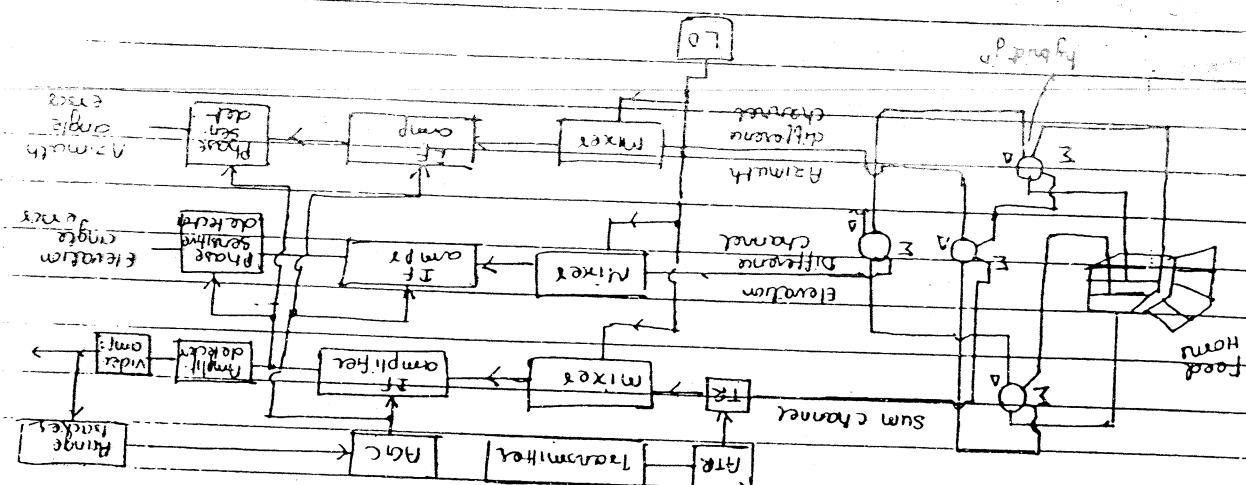 ATR
Transmitter
AGC
Range
tracker
Sum channel
TR
Mixer
IF
amplifier
Ampli:
detector
video
amp:
Feed
Horns
Σ
Δ
Elevation
Difference
channel
Mixer
IF
amp
Phase
sensitive
detector
Elevation
angle
error
Σ
Δ
Σ
Δ
Σ
Δ
hybrid jn
Azimuth
difference
channel
Mixer
IF
amp
Phase
sen:
det
Azimuth
angle
error
LO